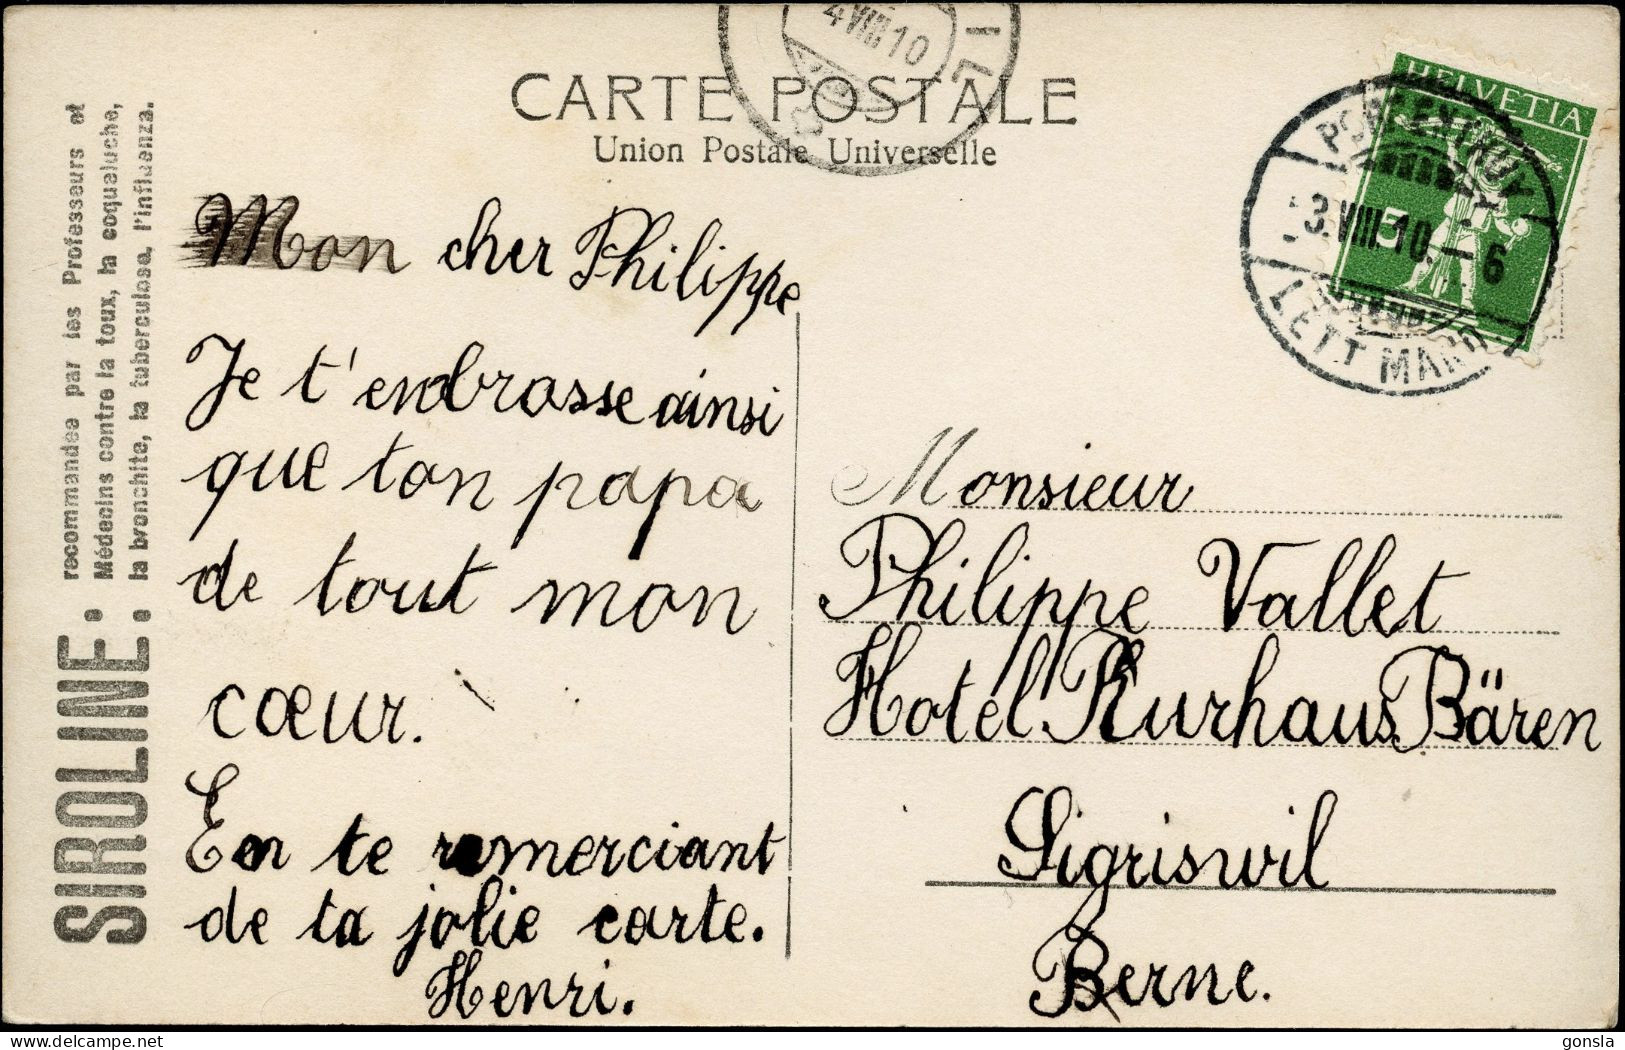 CARTE POSTALE
Union Postale Universelle
4 VIII 10
IL
HELVETIA
5
PORRENTRUY
3. VIII 10. – 6
LETT
SIROLINE:
recommandée par les Professeurs et
Médecins contre la toux, la coqueluche,
la bronchite, la tuberculose, l'influenza.
Mon cher Philippe
Je t'embrasse ainsi
que ton papa
de tout mon
cœur.
En te remerciant
de ta jolie carte.
Henri.
Monsieur
Philippe Vallet
Hotel Kurhaus Bären
Sigriswil
Berne.
delcampe.net
gonsla